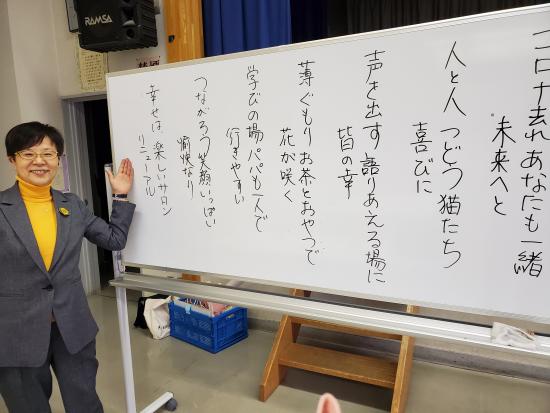 コロナ去れあなたにも一緒
未来へと
人と人つどつ猫たち
喜びに
声を出す語りあえる場に
皆の幸
薄ぐもりお茶とおやつで
花が咲く
学びの場パパも二人で
行きやすい
つながろう笑顔いっぱい
愉快なり
幸せは楽しいサロン
リニューアル
RAMSA